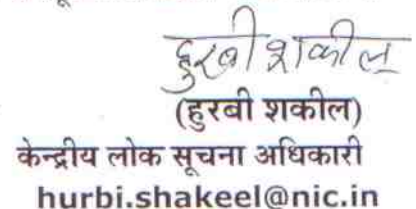 हुरबी शकील
(हुरबी शकील)
केन्द्रीय लोक सूचना अधिकारी
hurbi.shakeel@nic.in